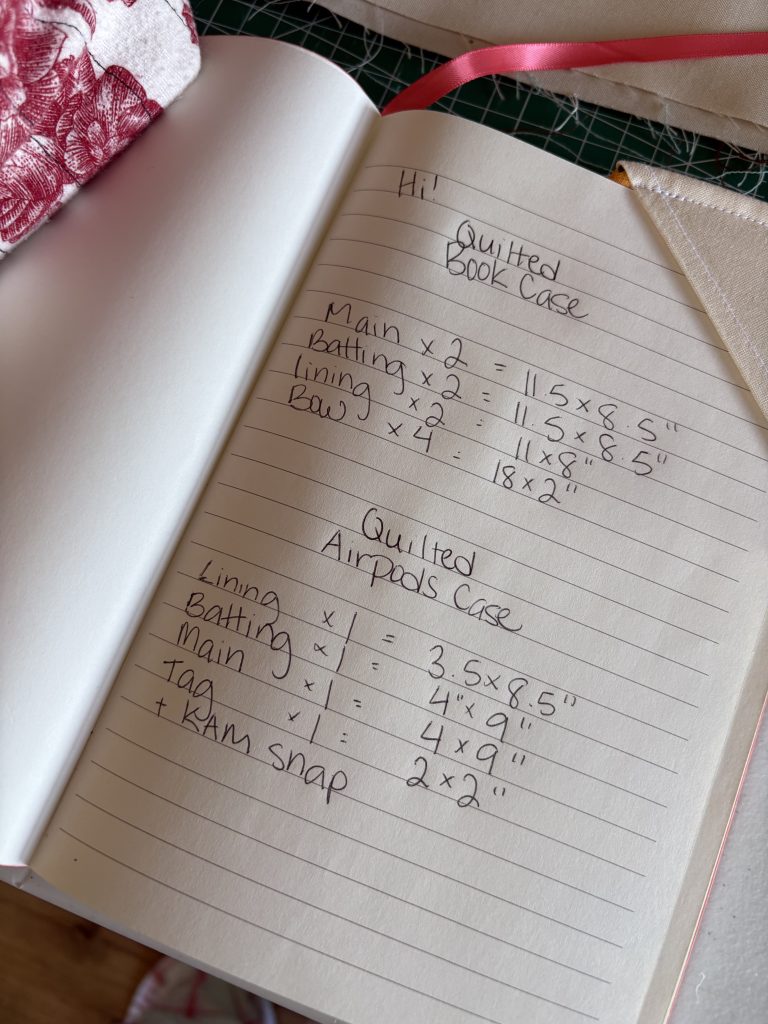 Hi!
Quilted
Book Case
Main x 2 = 11.5 x 8.5"
Batting x 2 = 11.5 x 8.5"
lining x 2 = 11 x 8"
Bow x 4 = 18 x 2"
Quilted
Airpods Case
Lining x 1 = 3.5 x 8.5"
Batting x 1 = 4" x 9"
Main x 1 = 4 x 9"
Tag x 1 = 2 x 2"
+ KAM snap